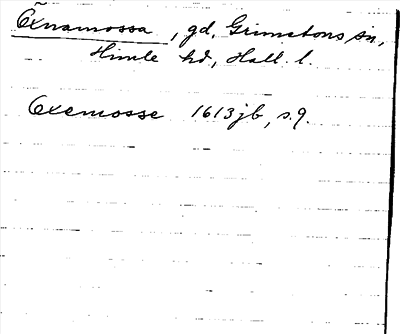 Öxnamossa, gd, Grimetons sn,
Himle hd, Hall. l.
Oxemosse 1613 jb, s. 9.